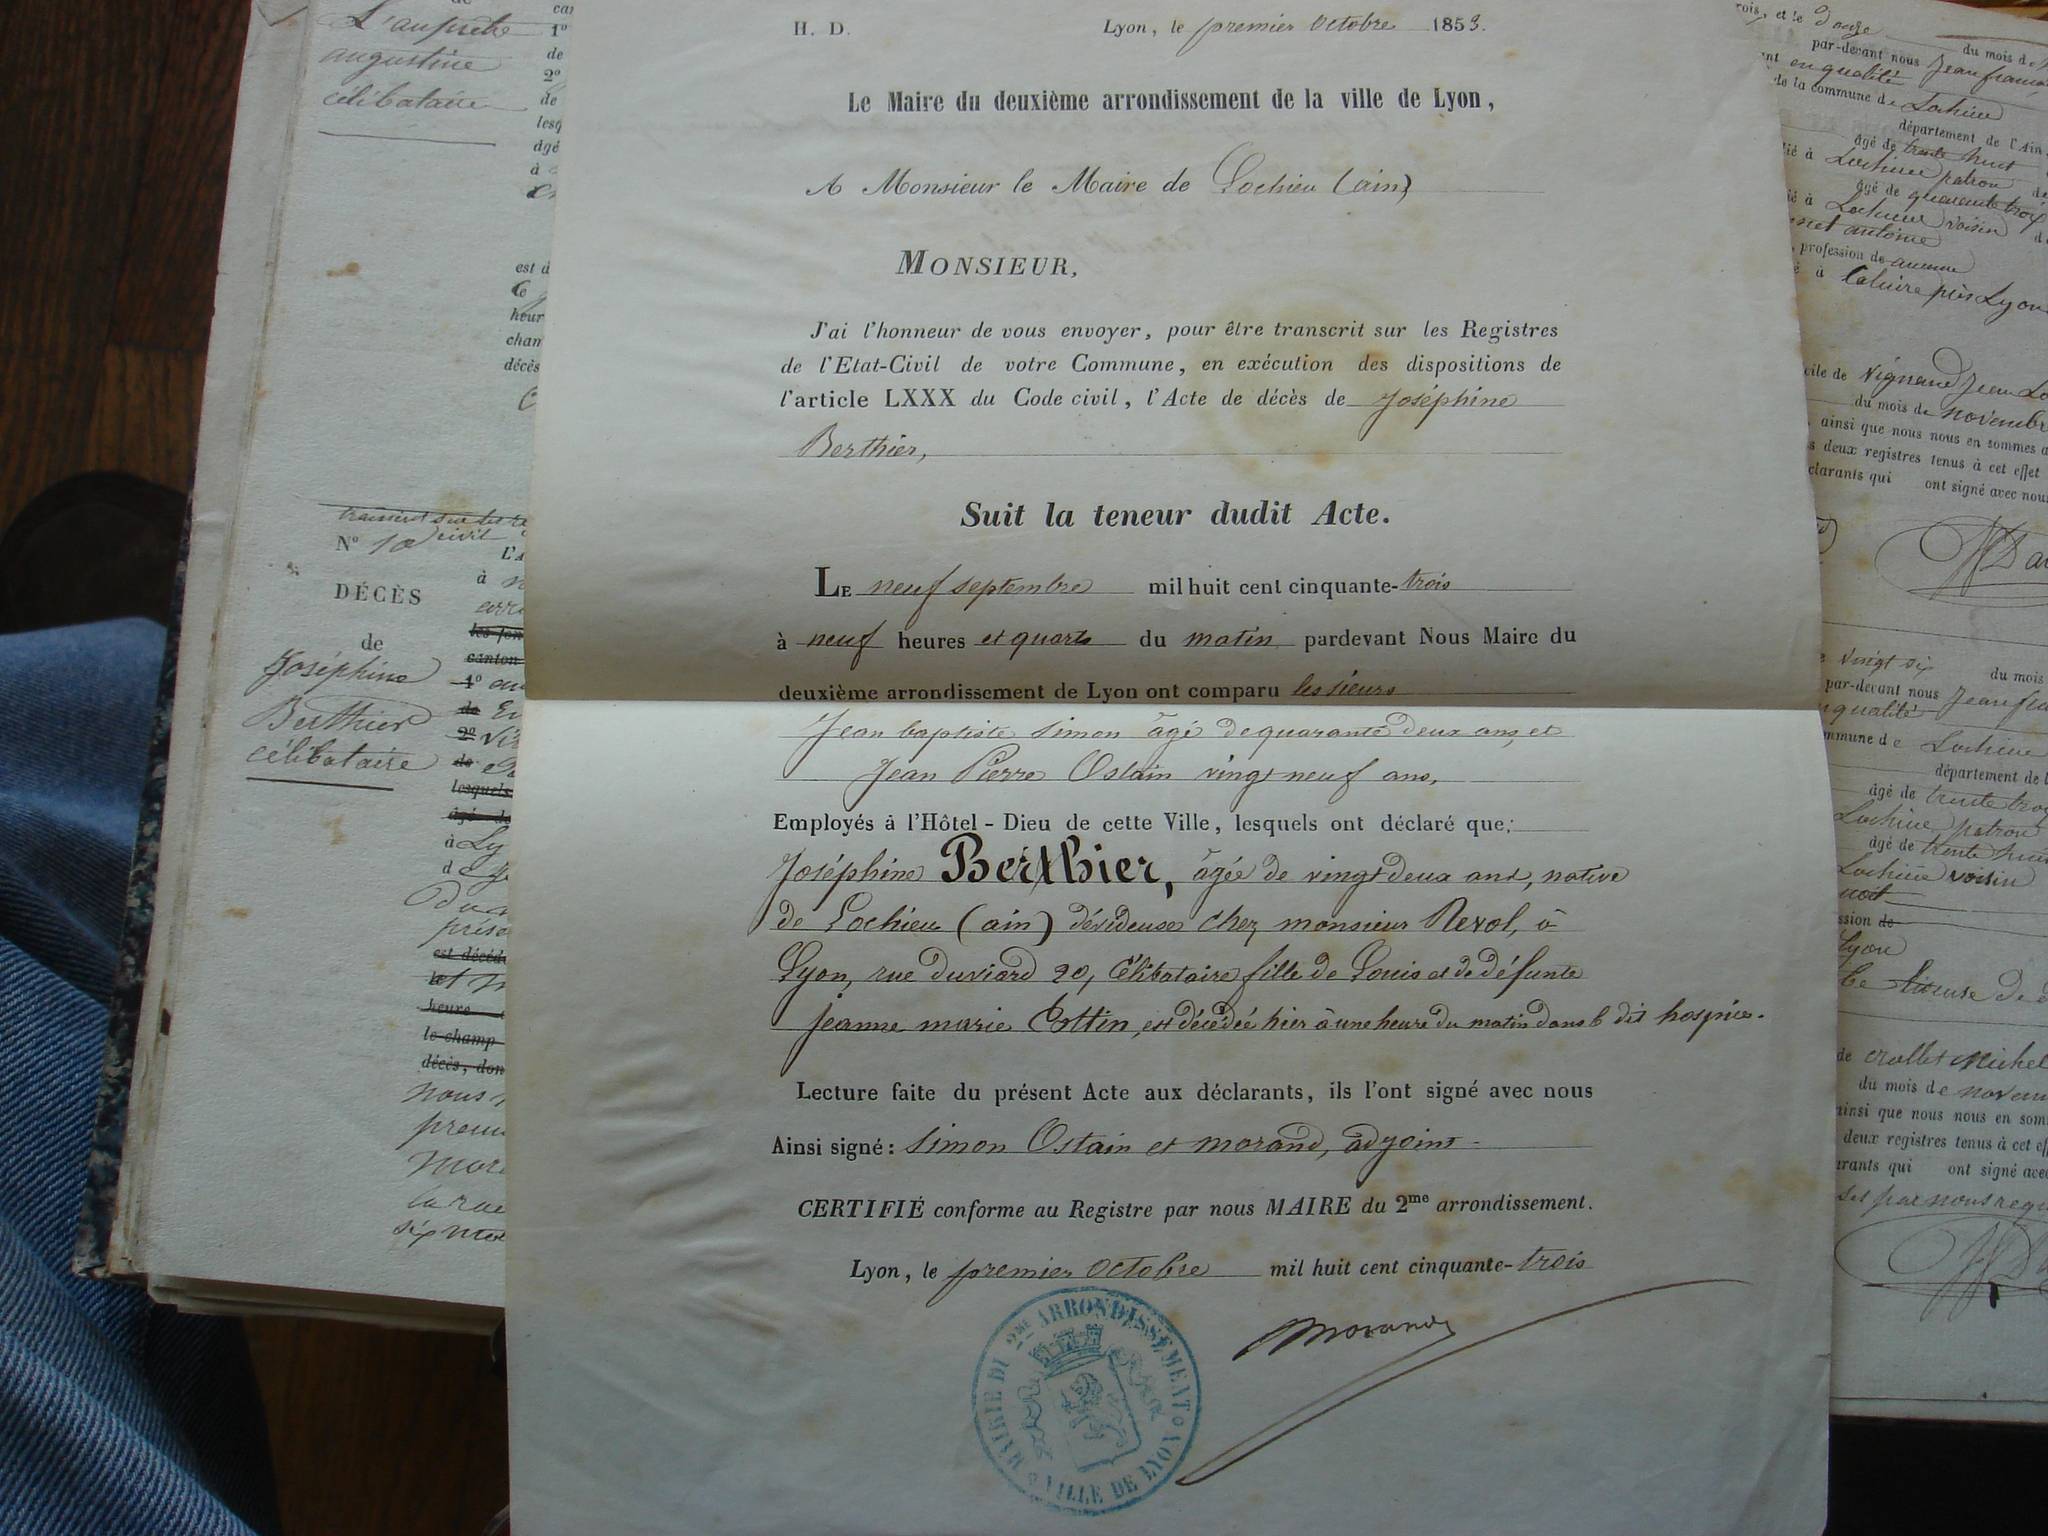 L'auprete
augustine
célibataire
1º
de
2º
de
lesq
âgé
à
est d
heur
cham
décès
Nº 10
L'A
à
DÉCÈS
de
Joséphine
Berthier
célibataire
canton
1º
de
2º
de
lesquels
âgé de
à Ly
est décédé
heure
le champ
décès, don
nous
la rue
H. D. Lyon, le premier octobre 1853.
Le Maire du deuxième arrondissement de la ville de Lyon,
A Monsieur le Maire de Lochieu (ain)
MONSIEUR,
J'ai l'honneur de vous envoyer, pour être transcrit sur les Registres
de l'Etat-Civil de votre Commune, en exécution des dispositions de
l'article LXXX du Code civil, l'Acte de décès de Joséphine
Berthier,
Suit la teneur dudit Acte.
LE neuf septembre mil huit cent cinquante-trois
à neuf heures et quart du matin pardevant Nous Maire du
deuxième arrondissement de Lyon ont comparu les sieurs
Jean baptiste Simon âgé de quarante deux ans, et
Jean Pierre Ostain vingt neuf ans,
Employés à l'Hôtel-Dieu de cette Ville, lesquels ont déclaré que:
Joséphine Berthier, âgée de vingt deux ans, native
de Lochieu (ain) dévideuse chez monsieur Revol, à
Lyon, rue duviard 20, Célibataire fille de Louis et de défunte
jeanne marie Cottin, est décédée hier à une heure du matin dans le dit hospice.
Lecture faite du présent Acte aux déclarants, ils l'ont signé avec nous
Ainsi signé: Simon Ostain et morand, adjoint
CERTIFIÉ conforme au Registre par nous MAIRE du 2me arrondissement.
Lyon, le premier Octobre mil huit cent cinquante-trois
Morand
MAIRIE DU 2ME ARRONDISSEMENT
VILLE DE LYON
rois, et le douze du mois de
par-devant nous Jean françois
en qualité
de la commune de Lochieu
département de l'Ain
âgé de trente huit
à Lochieu patron
âgé de quarante trois
à Lochieu voisin
antoine
profession de aucune
à Caluire près Lyon
cile de Vignand Jean Lo
du mois de novembre
ainsi que nous nous en sommes a
deux registres tenus à cet effet
clarants qui ont signé avec nous
vingt six du mois
par-devant nous Jean fra
qualité
commune de Lochieu
département de l
âgé de trente trois
Lochieu, patron
âgé de trente huit
Lochieu voisin
ssion de
Lyon
de crollet Michel
du mois de novem
ainsi que nous nous en som
deux registres tenus à cet ef
arants qui ont signé avec
par nous requ